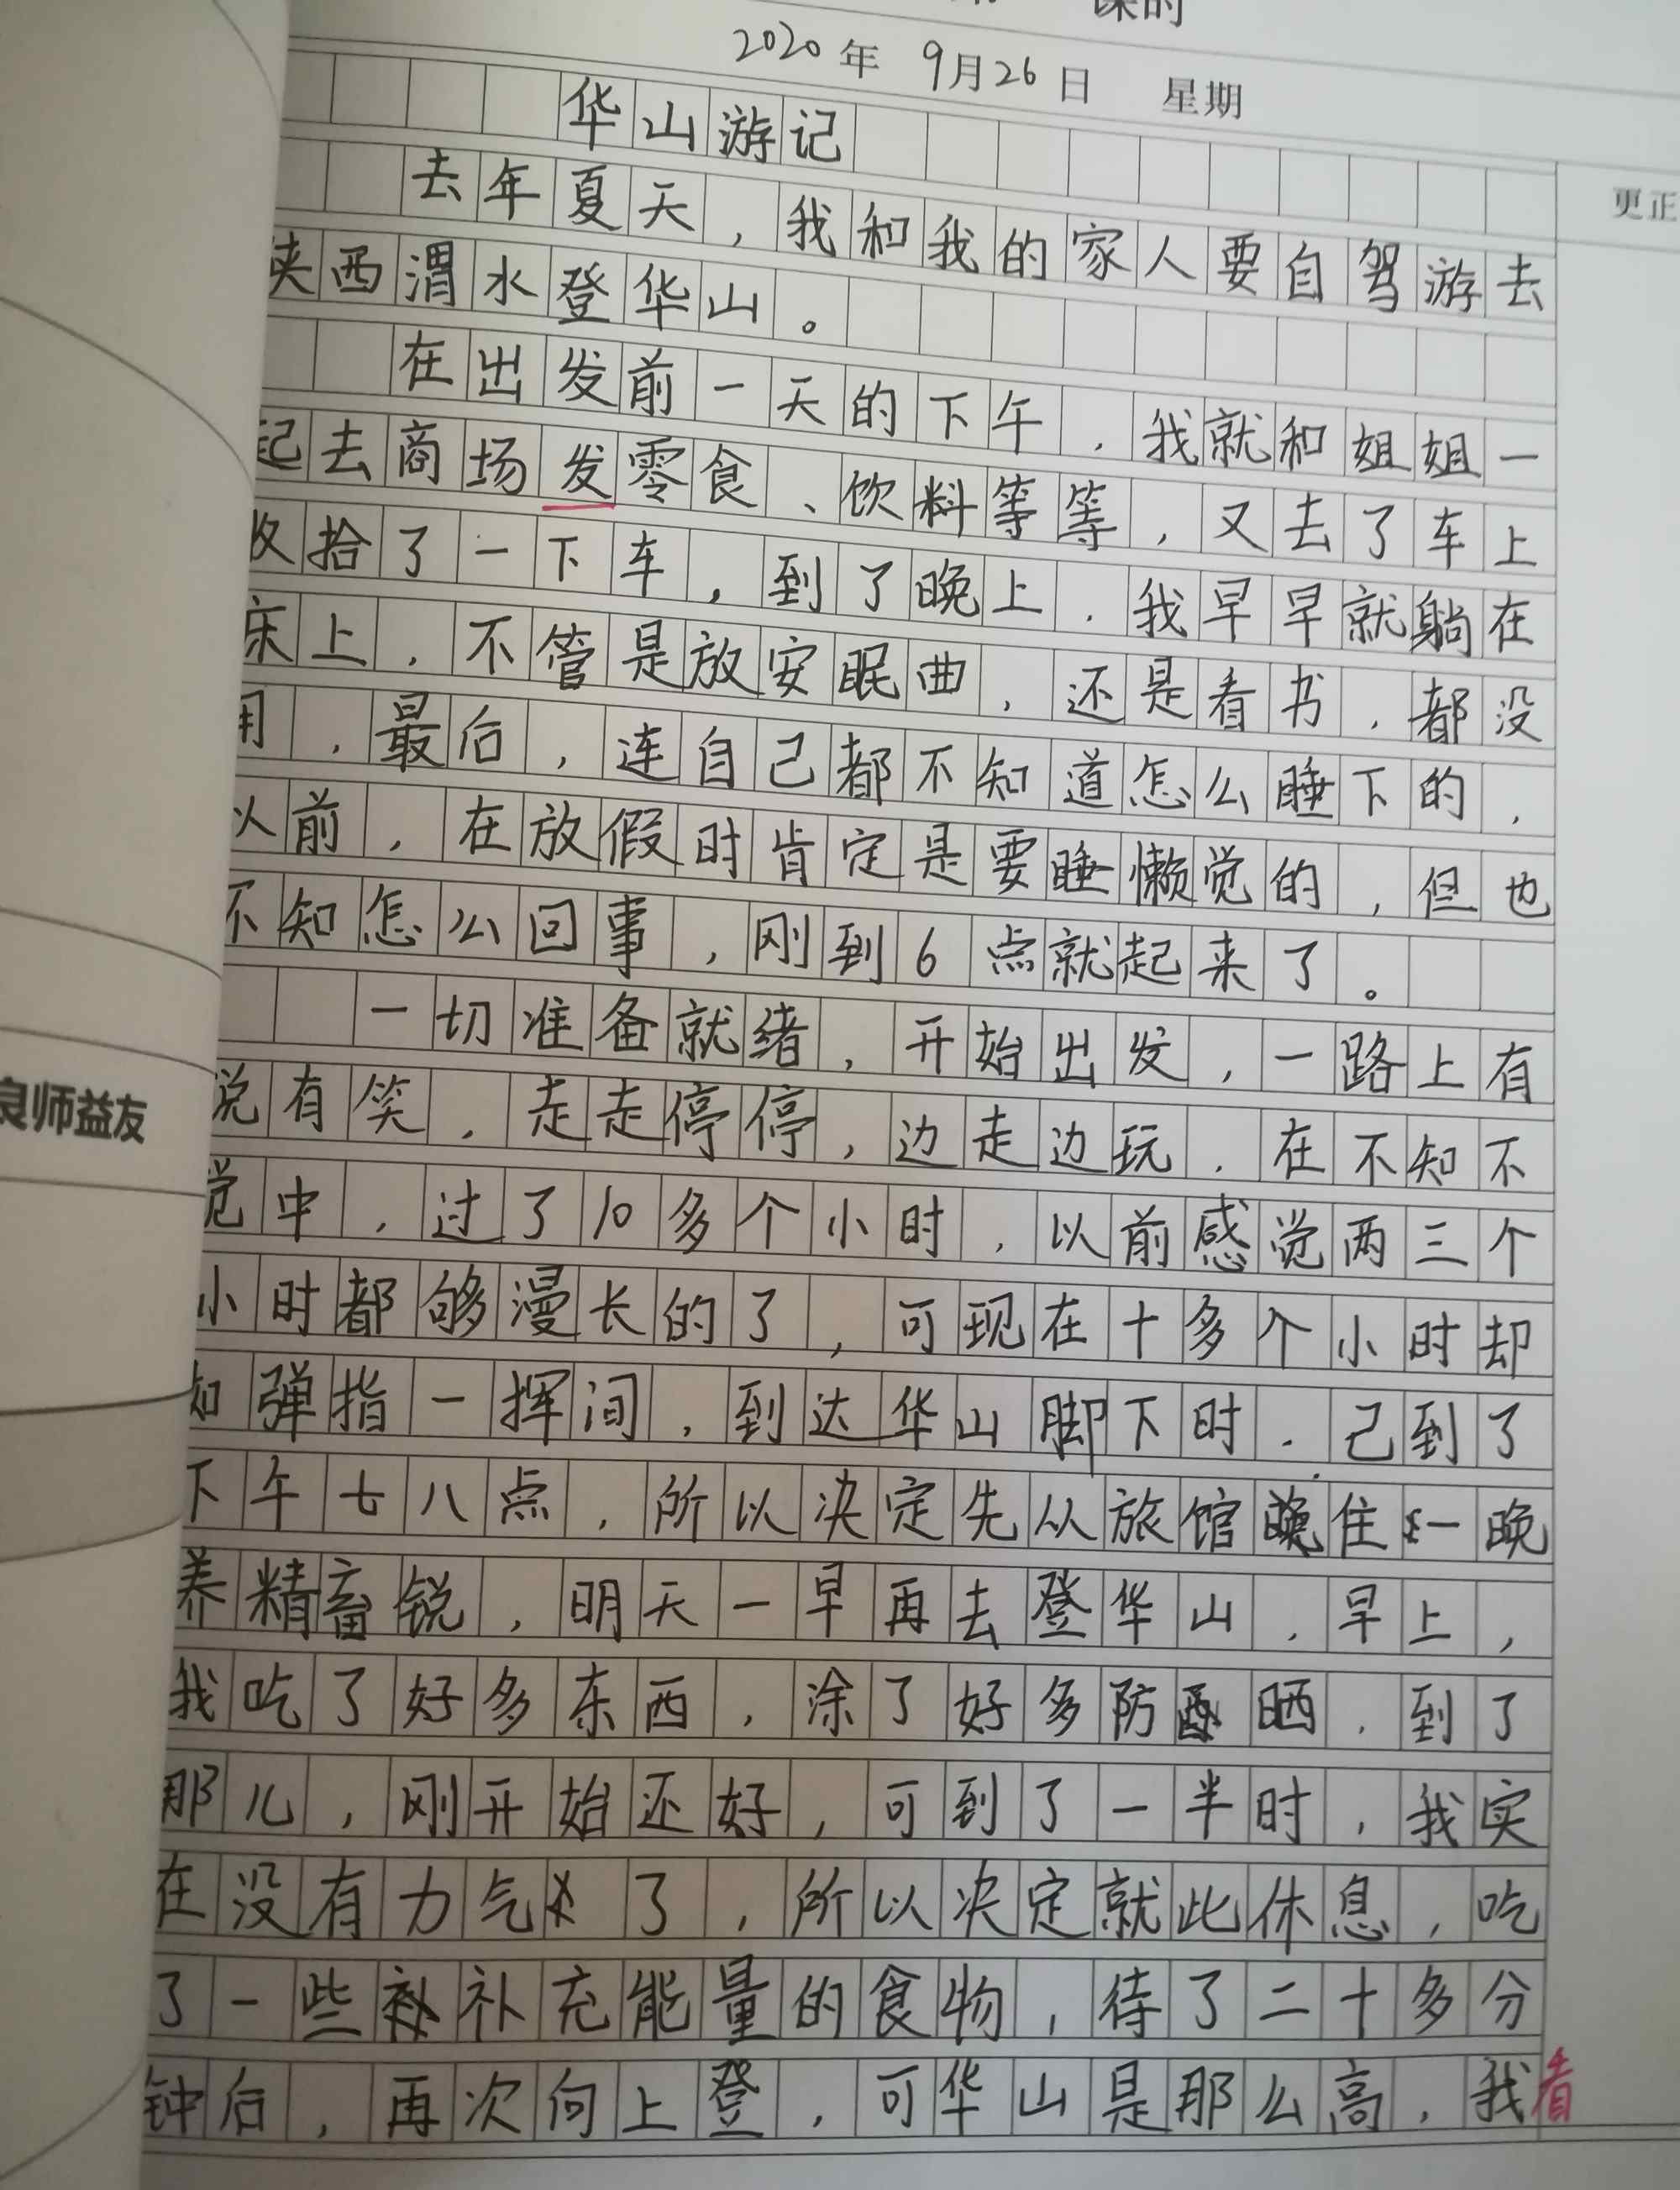 课时
2020年 9月26日 星期
华山游记
更正
去年夏天，我和我的家人要自驾游去
陕西渭水登华山。
在出发前一天的下午，我就和姐姐一
起去商场发零食、饮料等等，又去了车上
收拾了一下车，到了晚上，我早早就躺在
床上，不管是放安眠曲，还是看书，都没
用，最后，连自己都不知道怎么睡下的，
以前，在放假时肯定是要睡懒觉的，但也
不知怎么回事，刚到6点就起来了。
一切准备就绪，开始出发，一路上有
说有笑，走走停停，边走边玩，在不知不
觉中，过了10多个小时，以前感觉两三个
小时都够漫长的了，可现在十多个小时却
如弹指一挥间，到达华山脚下时，己到了
下午七八点，所以决定先从旅馆住一晚
养精畜锐，明天一早再去登华山，早上，
我吃了好多东西，涂了好多防晒，到了
那儿，刚开始还好，可到了一半时，我实
在没有力气了，所以决定就此休息，吃
了一些补充能量的食物，待了二十多分
钟后，再次向上登，可华山是那么高，我看
良师益友